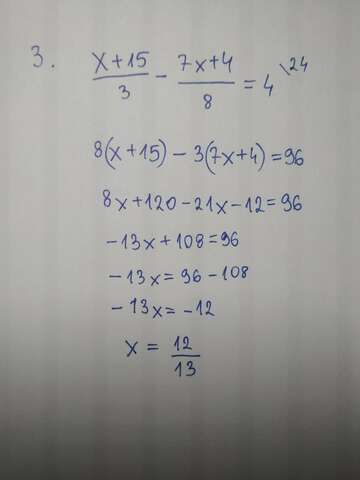 3. (x+15)/3 - (7x+4)/8 = 4 \24
8(x+15) - 3(7x+4) = 96
8x+120-21x-12=96
-13x+108=96
-13x=96-108
-13x=-12
x = 12/13